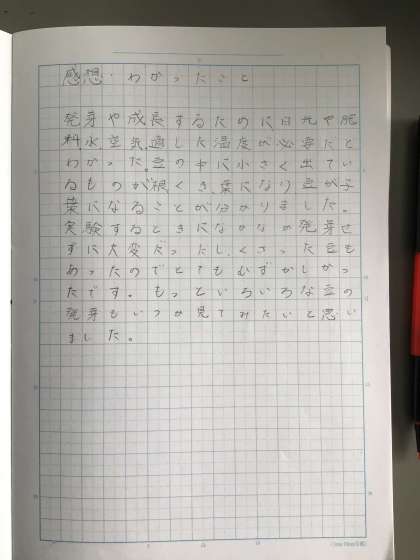 感想・わかったこと
発芽や成長するためには日光や肥
料、水、空気、適した温度が必要だと
わかった。豆の中に小さく出てい
るものが根、くき、葉になり豆が子
葉になることが分かりました。
実験するときになかなか発芽せ
ずに大変だったし、くさった豆も
あったのでとてもむずかしかっ
たです。もっといろいろな豆の
発芽もいつか見てみたいと思い
ました。